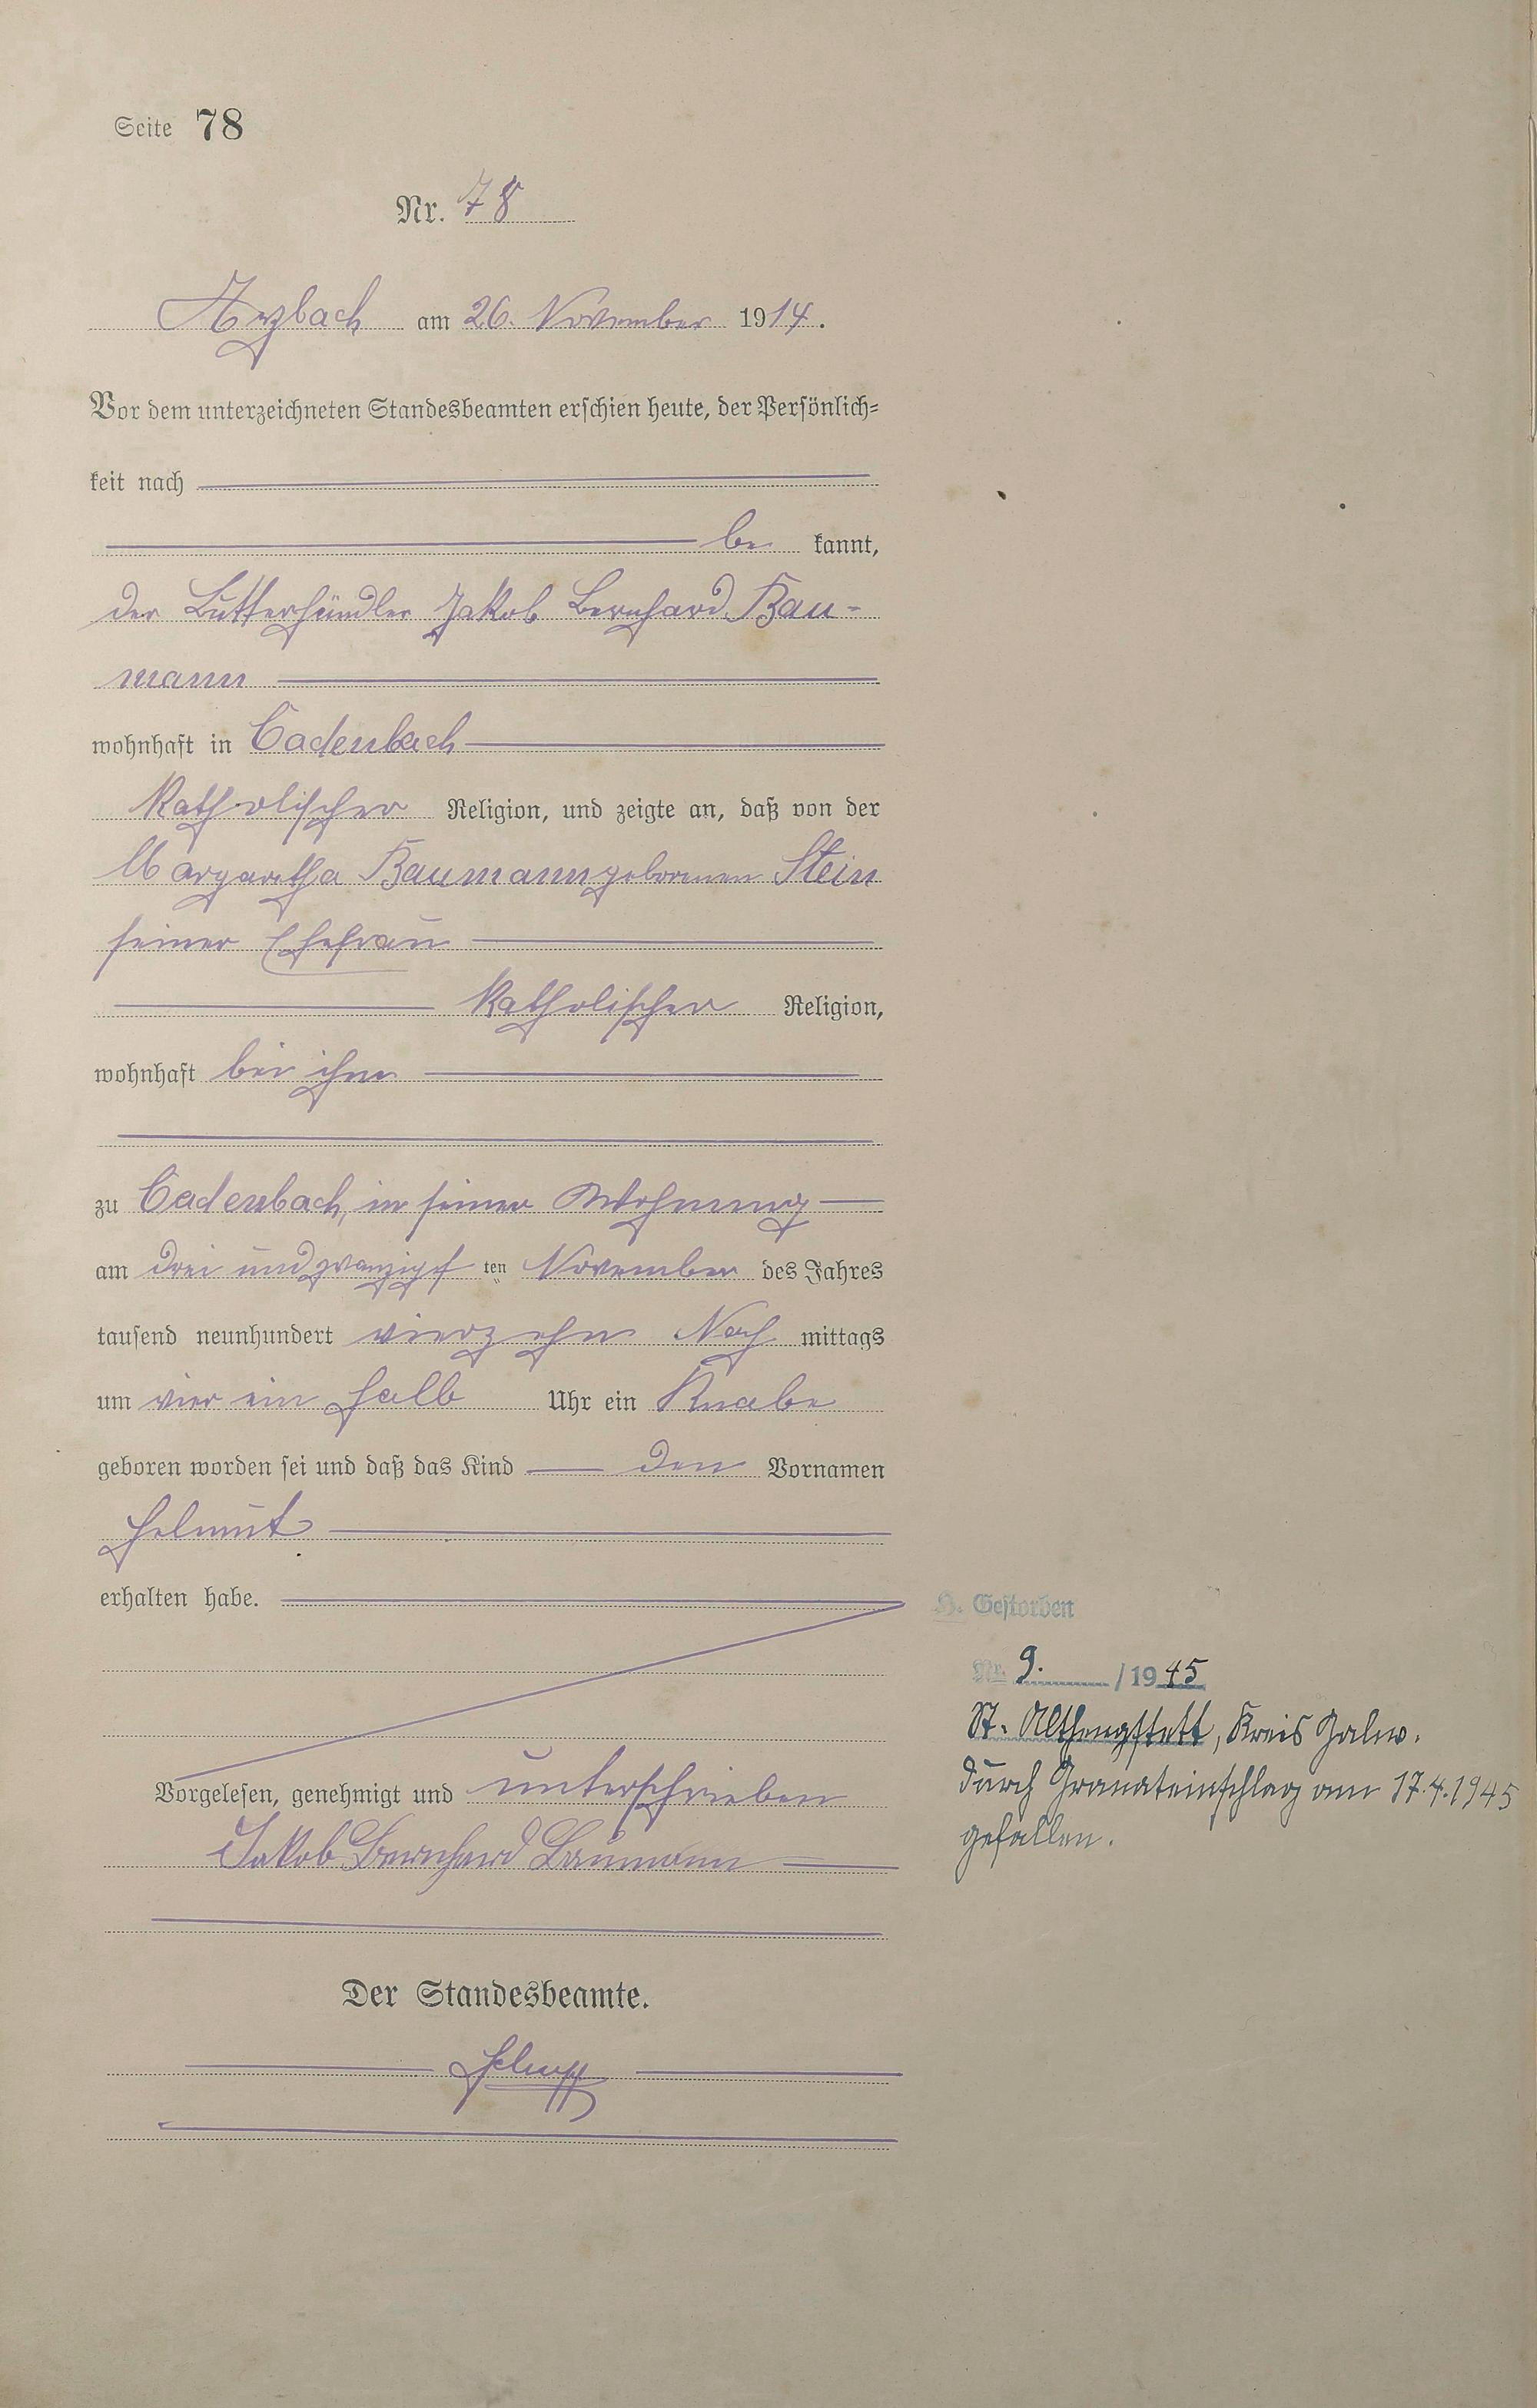 Seite 78
Nr. 78
Arzbach am 26. November 1914.
Vor dem unterzeichneten Standesbeamten erschien heute, der Persönlich-
keit nach
be kannt,
der Butterhändler Jakob Bernhard Bau-
mann
wohnhaft in Cadenbach
katholischer Religion, und zeigte an, daß von der
Margaretha Baumann geborenen Stein
seiner Ehefrau
katholischer Religion,
wohnhaft bei ihm
zu Cadenbach, in seiner Wohnung
am drei und zwanzigsten November des Jahres
tausend neunhundert vierzehn Nach mittags
um vier ein halb Uhr ein Knabe
geboren worden sei und daß das Kind den Vornamen
Helmut
erhalten habe.
H. Gestorben
Nr. 9. / 1945
St. Althengstett, Kreis Calw.
durch Granateinschlag am 17.4.1945
gefallen.
Vorgelesen, genehmigt und unterschrieben
Jakob Bernhard Baumann
Der Standesbeamte.